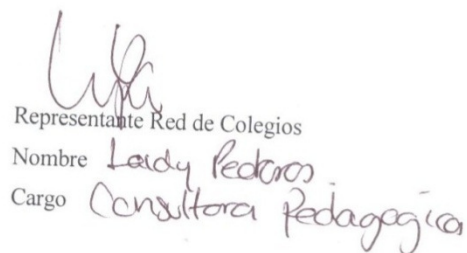 Representante Red de Colegios
Nombre Leidy
Cargo Consultora Pedagogica